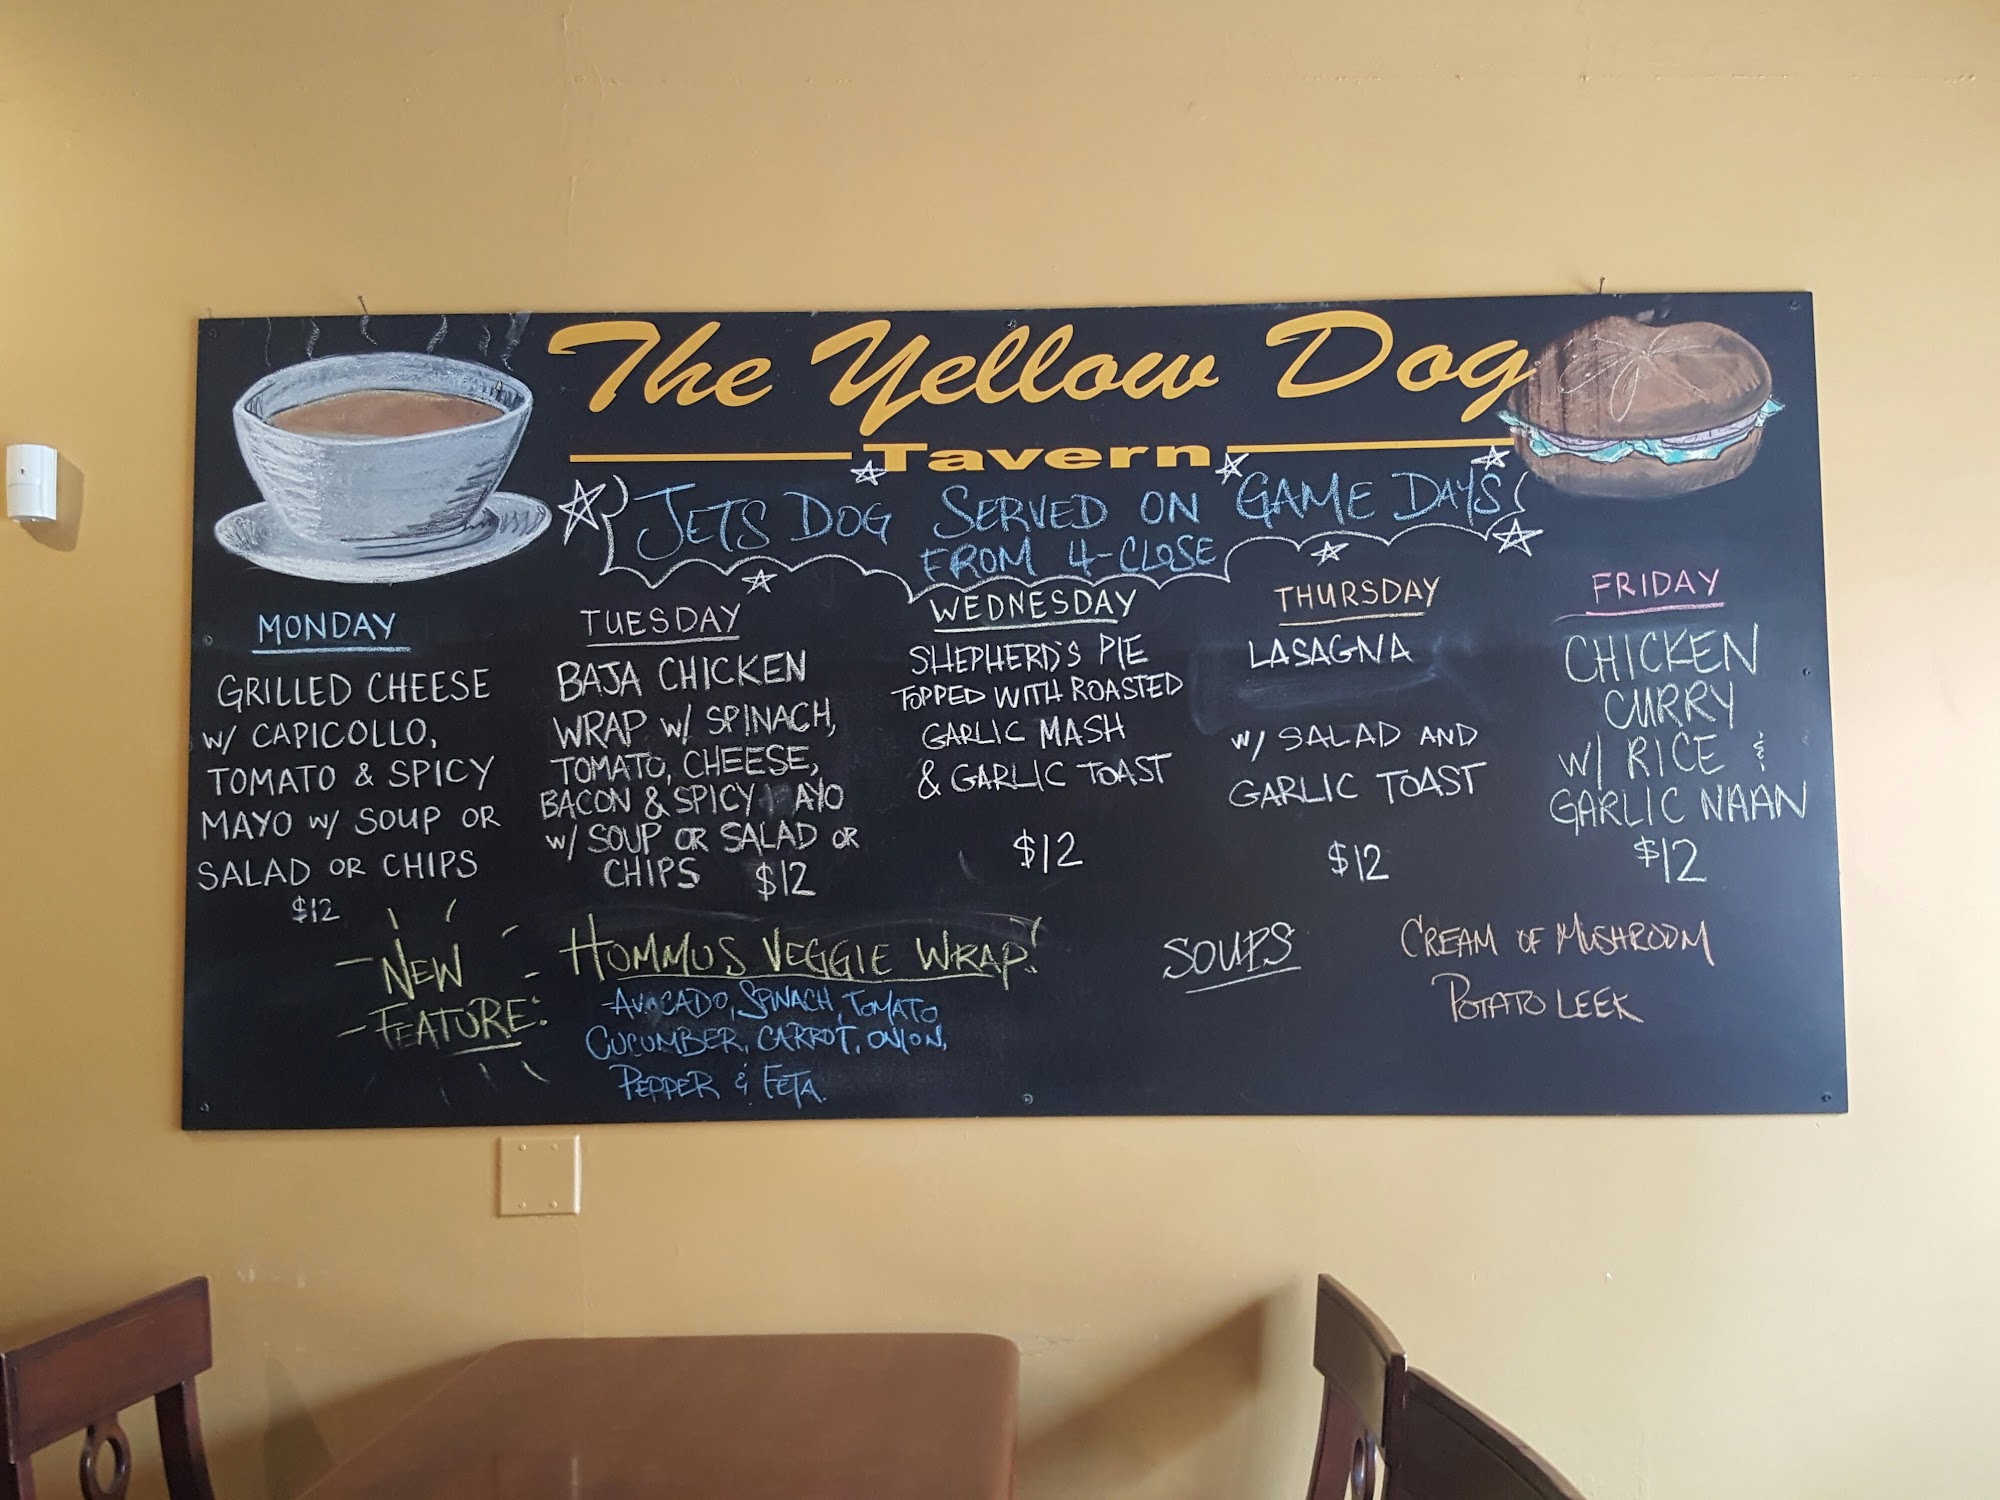 The Yellow Dog
Tavern
JETS DOG SERVED ON GAME DAYS!
FROM 4-CLOSE
MONDAY
GRILLED CHEESE
W/ CAPICOLLO,
TOMATO & SPICY
MAYO W/ SOUP OR
SALAD OR CHIPS
$12
TUESDAY
BAJA CHICKEN
WRAP W/ SPINACH,
TOMATO, CHEESE,
BACON & SPICY AYO
W/ SOUP OR SALAD OR
CHIPS $12
WEDNESDAY
SHEPHERD'S PIE
TOPPED WITH ROASTED
GARLIC MASH
& GARLIC TOAST
$12
THURSDAY
LASAGNA
W/ SALAD AND
GARLIC TOAST
$12
FRIDAY
CHICKEN
CURRY
W/ RICE &
GARLIC NAAN
$12
NEW
FEATURE:
HOMMUS VEGGIE WRAP!
-AVOCADO, SPINACH, TOMATO
CUCUMBER, CARROT, ONION,
PEPPER & FETA.
SOUPS
CREAM OF MUSHROOM
POTATO LEEK